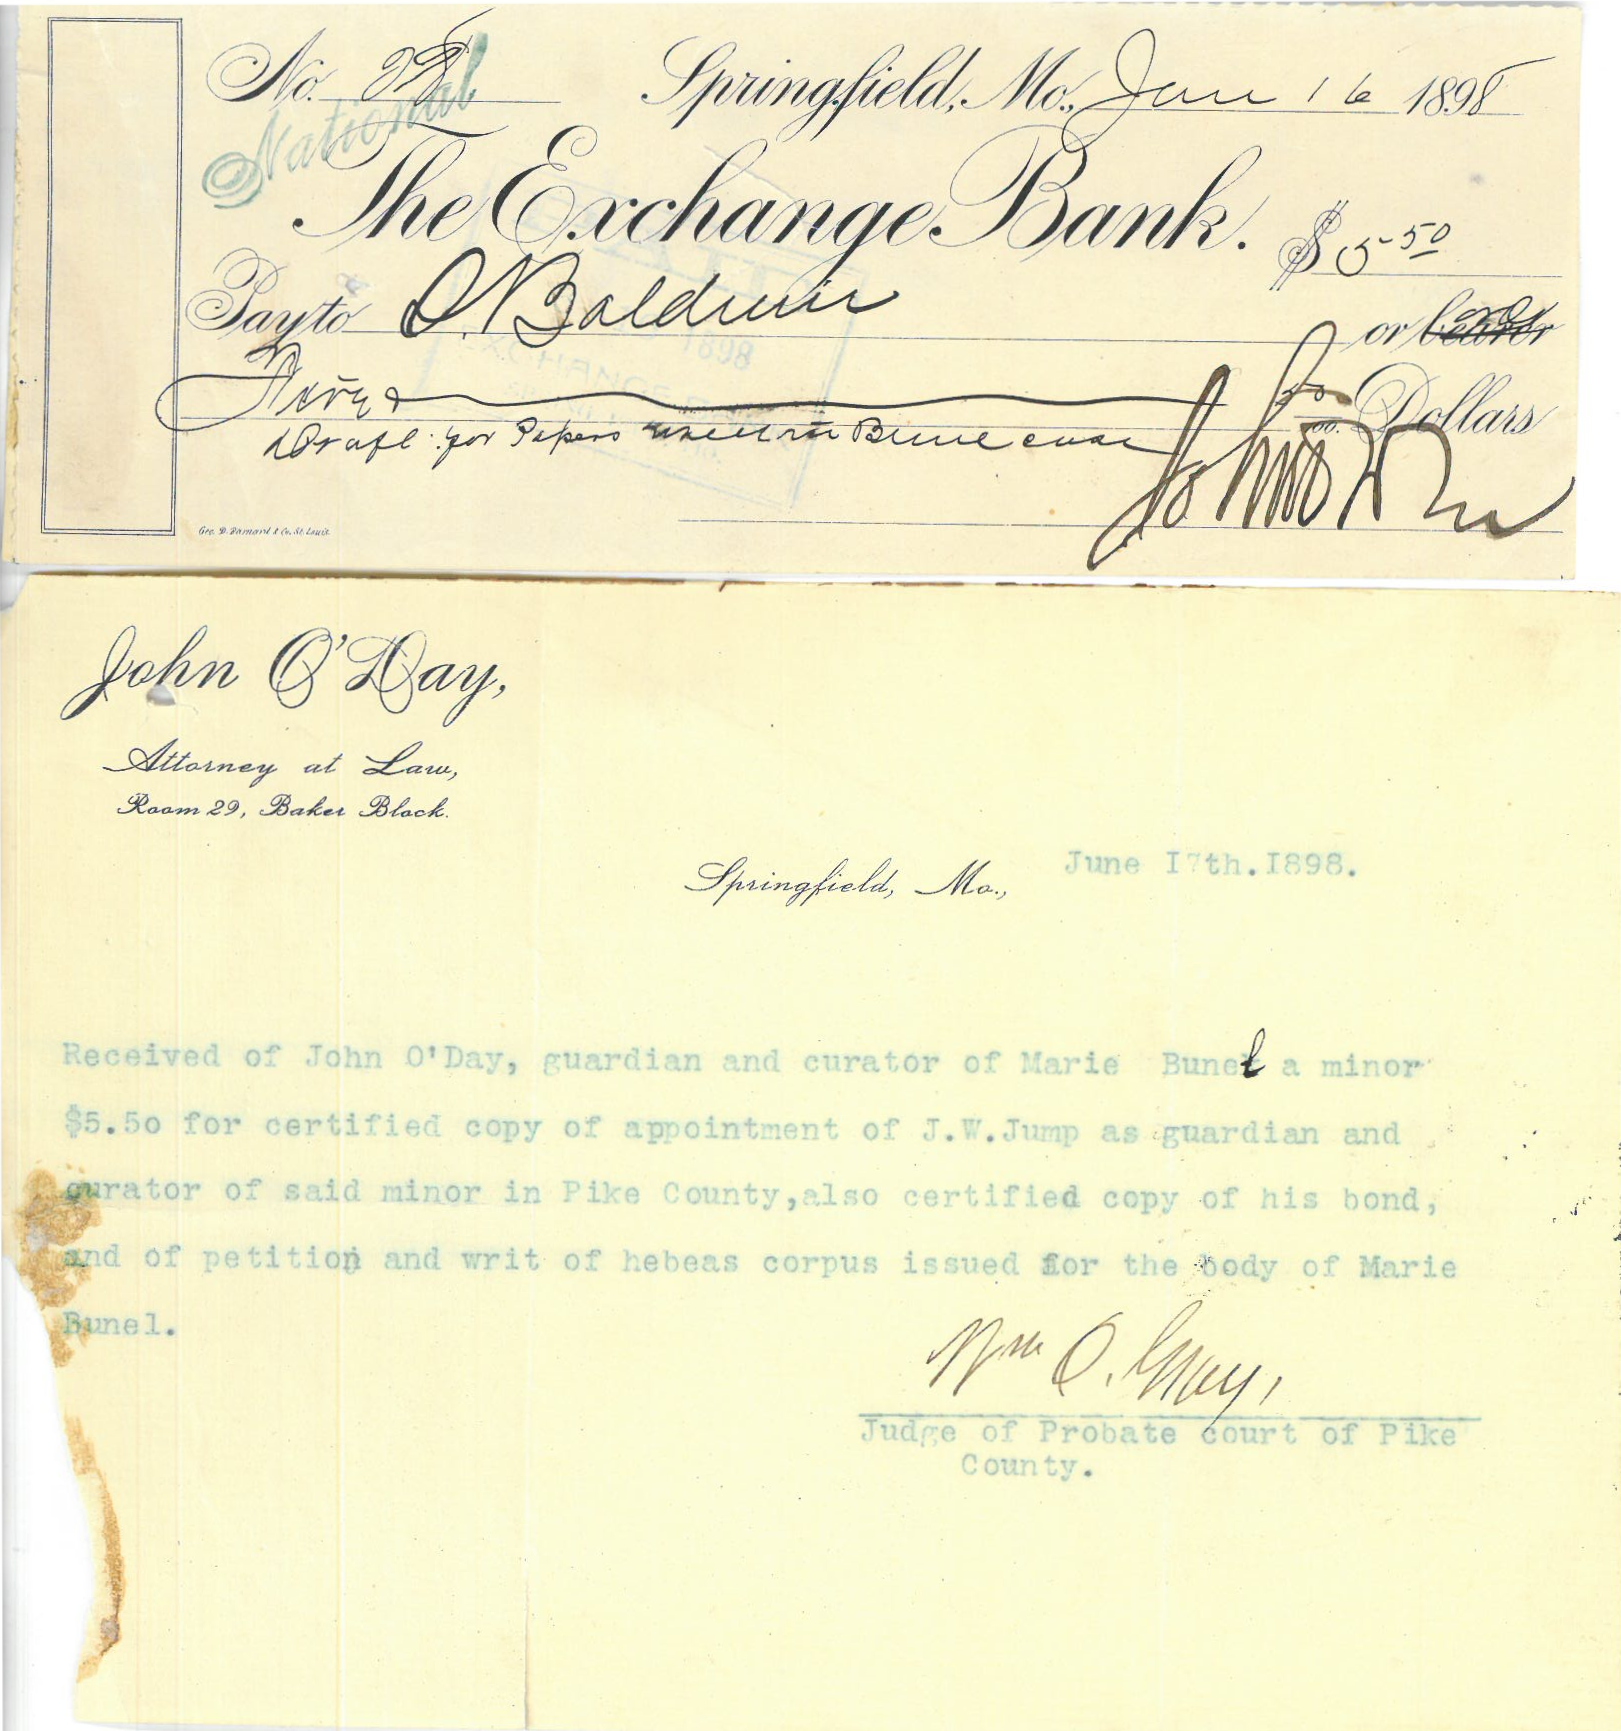 No. 28
Springfield, Mo., June 16 1898
National
The Exchange Bank.
$5 50
Pay to D. Baldwin
or bearer order
Five 50/00. Dollars
Draft for Papers in Bunel case
John O'Day
Geo. D. Barnard & Co. St. Louis.
John O'Day,
Attorney at Law,
Room 29, Baker Block.
Springfield, Mo., June I7th.I898.
Received of John O'Day, guardian and curator of Marie Bunel a minor
$5.5o for certified copy of appointment of J.W.Jump as guardian and
curator of said minor in Pike County,also certified copy of his bond,
and of petition and writ of hebeas corpus issued for the body of Marie
Bunel.
Wm O. Gray,
Judge of Probate court of Pike
County.